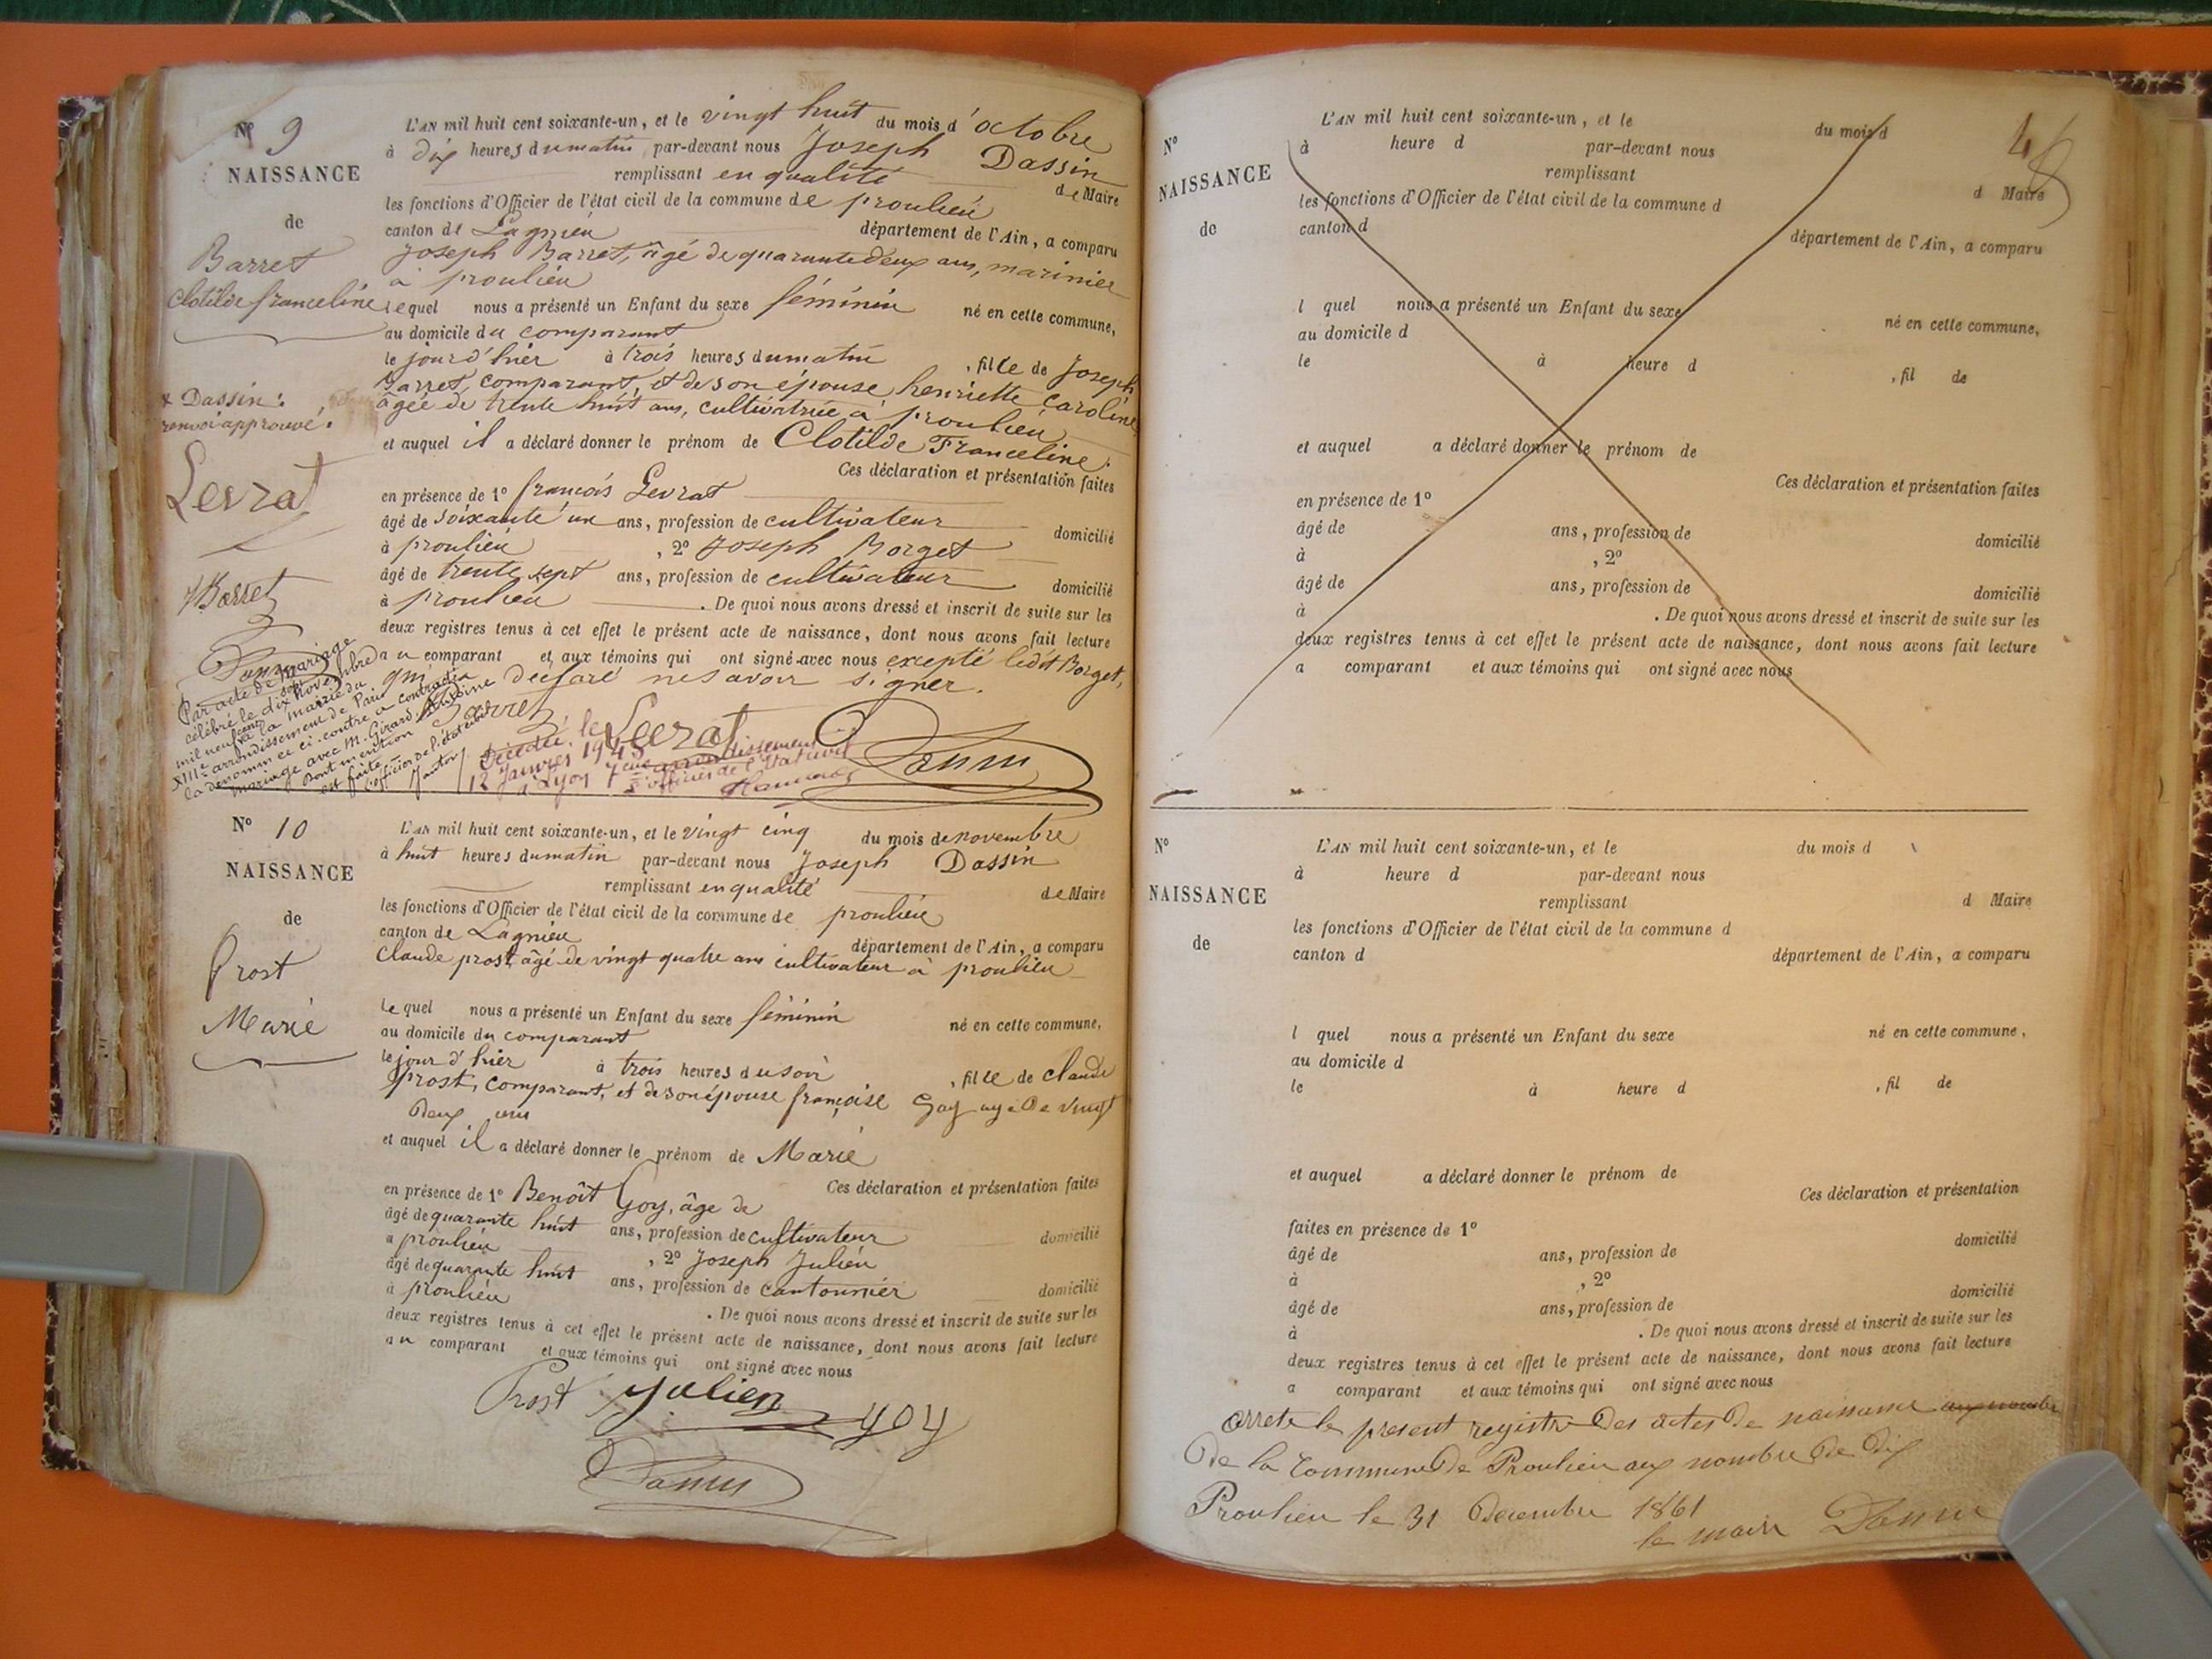 N° 9
NAISSANCE
de
Barret
Clotilde franceline
L'AN mil huit cent soixante-un, et le vingt huit du mois d'octobre
à dix heures du matin par-devant nous Joseph Dassin
remplissant en qualité de Maire
les fonctions d'Officier de l'état civil de la commune de proulieu
canton de Lagnieu département de l'Ain, a comparu
Joseph Barret, âgé de quarante deux ans, marinier
à proulieu
lequel nous a présenté un Enfant du sexe féminin né en cette commune,
au domicile du comparant
le jour d'hier à trois heures du matin , fille de Joseph
Barret, comparant, et de son épouse henriette Caroline
âgée de trente huit ans, cultivatrice a proulieu
et auquel il a déclaré donner le prénom de Clotilde Franceline.
Ces déclaration et présentation faites
en présence de 1° francois Levrat
âgé de soixante un ans, profession de cultivateur domicilié
à proulieu , 2° Joseph Borget
âgé de trente sept ans, profession de cultivateur domicilié
à proulieu . De quoi nous avons dressé et inscrit de suite sur les
deux registres tenus à cet effet le présent acte de naissance, dont nous avons fait lecture
au comparant et aux témoins qui ont signé avec nous excepté ledit Borget,
qui a déclaré ne savoir signer.
Barret Levrat Dassin
x Dassin:
renvoi approuvé.
Levrat
Barret
Dassin
Par acte de mariage
célébré le dix sept Novembre
mil neuf cent à la mairie du
XIIIe arrondissement de Paris
la dénommée ci-contre a contracté
mariage avec M. Girard Antoine
Dont mention
est faite
l'officier de l'état civil
Décédée le
12 Janvier 1945
à Lyon 7eme arrondissement
l'officier de l'état civil
N° 10
NAISSANCE
de
Prost
Marie
L'AN mil huit cent soixante-un, et le vingt cinq du mois de novembre
à huit heures du matin par-devant nous Joseph Dassin
remplissant en qualité de Maire
les fonctions d'Officier de l'état civil de la commune de proulieu
canton de Lagnieu département de l'Ain, a comparu
Claude prost âgé de vingt quatre ans cultivateur à proulieu
le quel nous a présenté un Enfant du sexe féminin né en cette commune,
au domicile du comparant
le jour d'hier à trois heures du soir , fille de claude
prost, comparant, et de son épouse françoise Goy agé de vingt
deux ans
et auquel il a déclaré donner le prénom de Marie
Ces déclaration et présentation faites
en présence de 1° Benoît Goy, âge de
âgé de quarante huit ans, profession de cultivateur domicilié
a proulieu , 2° Joseph Julien
âgé de quarante huit ans, profession de cantonnier domicilié
à proulieu . De quoi nous avons dressé et inscrit de suite sur les
deux registres tenus à cet effet le présent acte de naissance, dont nous avons fait lecture
au comparant et aux témoins qui ont signé avec nous
Prost Julien goy
Dassin
48
N°
NAISSANCE
de
L'AN mil huit cent soixante-un, et le du mois d
à heure d par-devant nous
remplissant d Maire
les fonctions d'Officier de l'état civil de la commune d
canton d département de l'Ain, a comparu
l quel nous a présenté un Enfant du sexe né en cette commune,
au domicile d
le à heure d , fil de
et auquel a déclaré donner le prénom de
Ces déclaration et présentation faites
en présence de 1°
âgé de ans, profession de domicilié
à , 2°
âgé de ans, profession de domicilié
à . De quoi nous avons dressé et inscrit de suite sur les
deux registres tenus à cet effet le présent acte de naissance, dont nous avons fait lecture
a comparant et aux témoins qui ont signé avec nous
N°
NAISSANCE
de
L'AN mil huit cent soixante-un, et le du mois d
à heure d par-devant nous
remplissant d Maire
les fonctions d'Officier de l'état civil de la commune d
canton d département de l'Ain, a comparu
l quel nous a présenté un Enfant du sexe né en cette commune,
au domicile d
le à heure d , fil de
et auquel a déclaré donner le prénom de
Ces déclaration et présentation
faites en présence de 1°
âgé de ans, profession de domicilié
à , 2°
âgé de ans, profession de domicilié
à . De quoi nous avons dressé et inscrit de suite sur les
deux registres tenus à cet effet le présent acte de naissance, dont nous avons fait lecture
a comparant et aux témoins qui ont signé avec nous
arrete le present registre des actes de naissance aux nombre
De la Commune de Proulieu aux nombre De Dix
Proulieu le 31 Decembre 1861
le maire Dassin